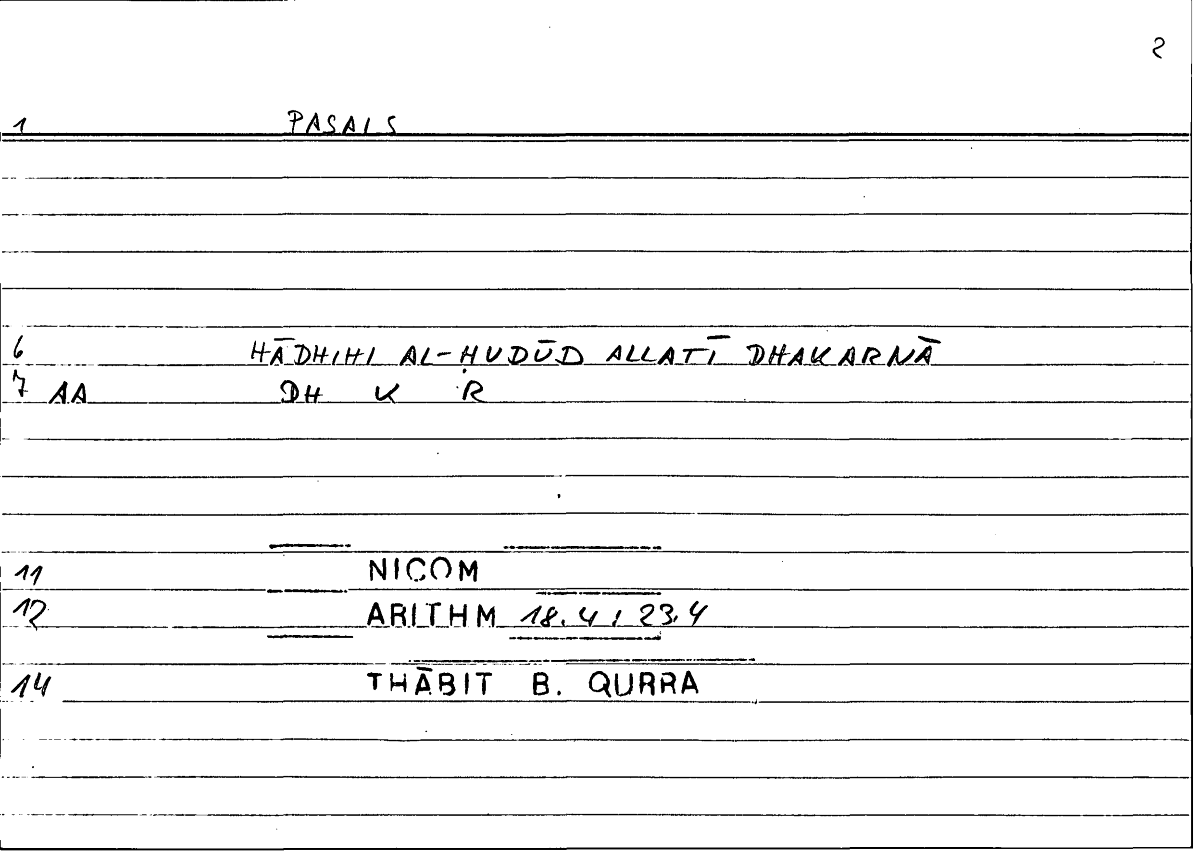 2
1 PASAIS
6 HĀDHIHI AL-ḤUDŪD ALLATĪ DHAKARNĀ
7 AA DH K R
11 NICOM
12 ARITHM 18.4 ; 23.4
14 THĀBIT B. QURRA